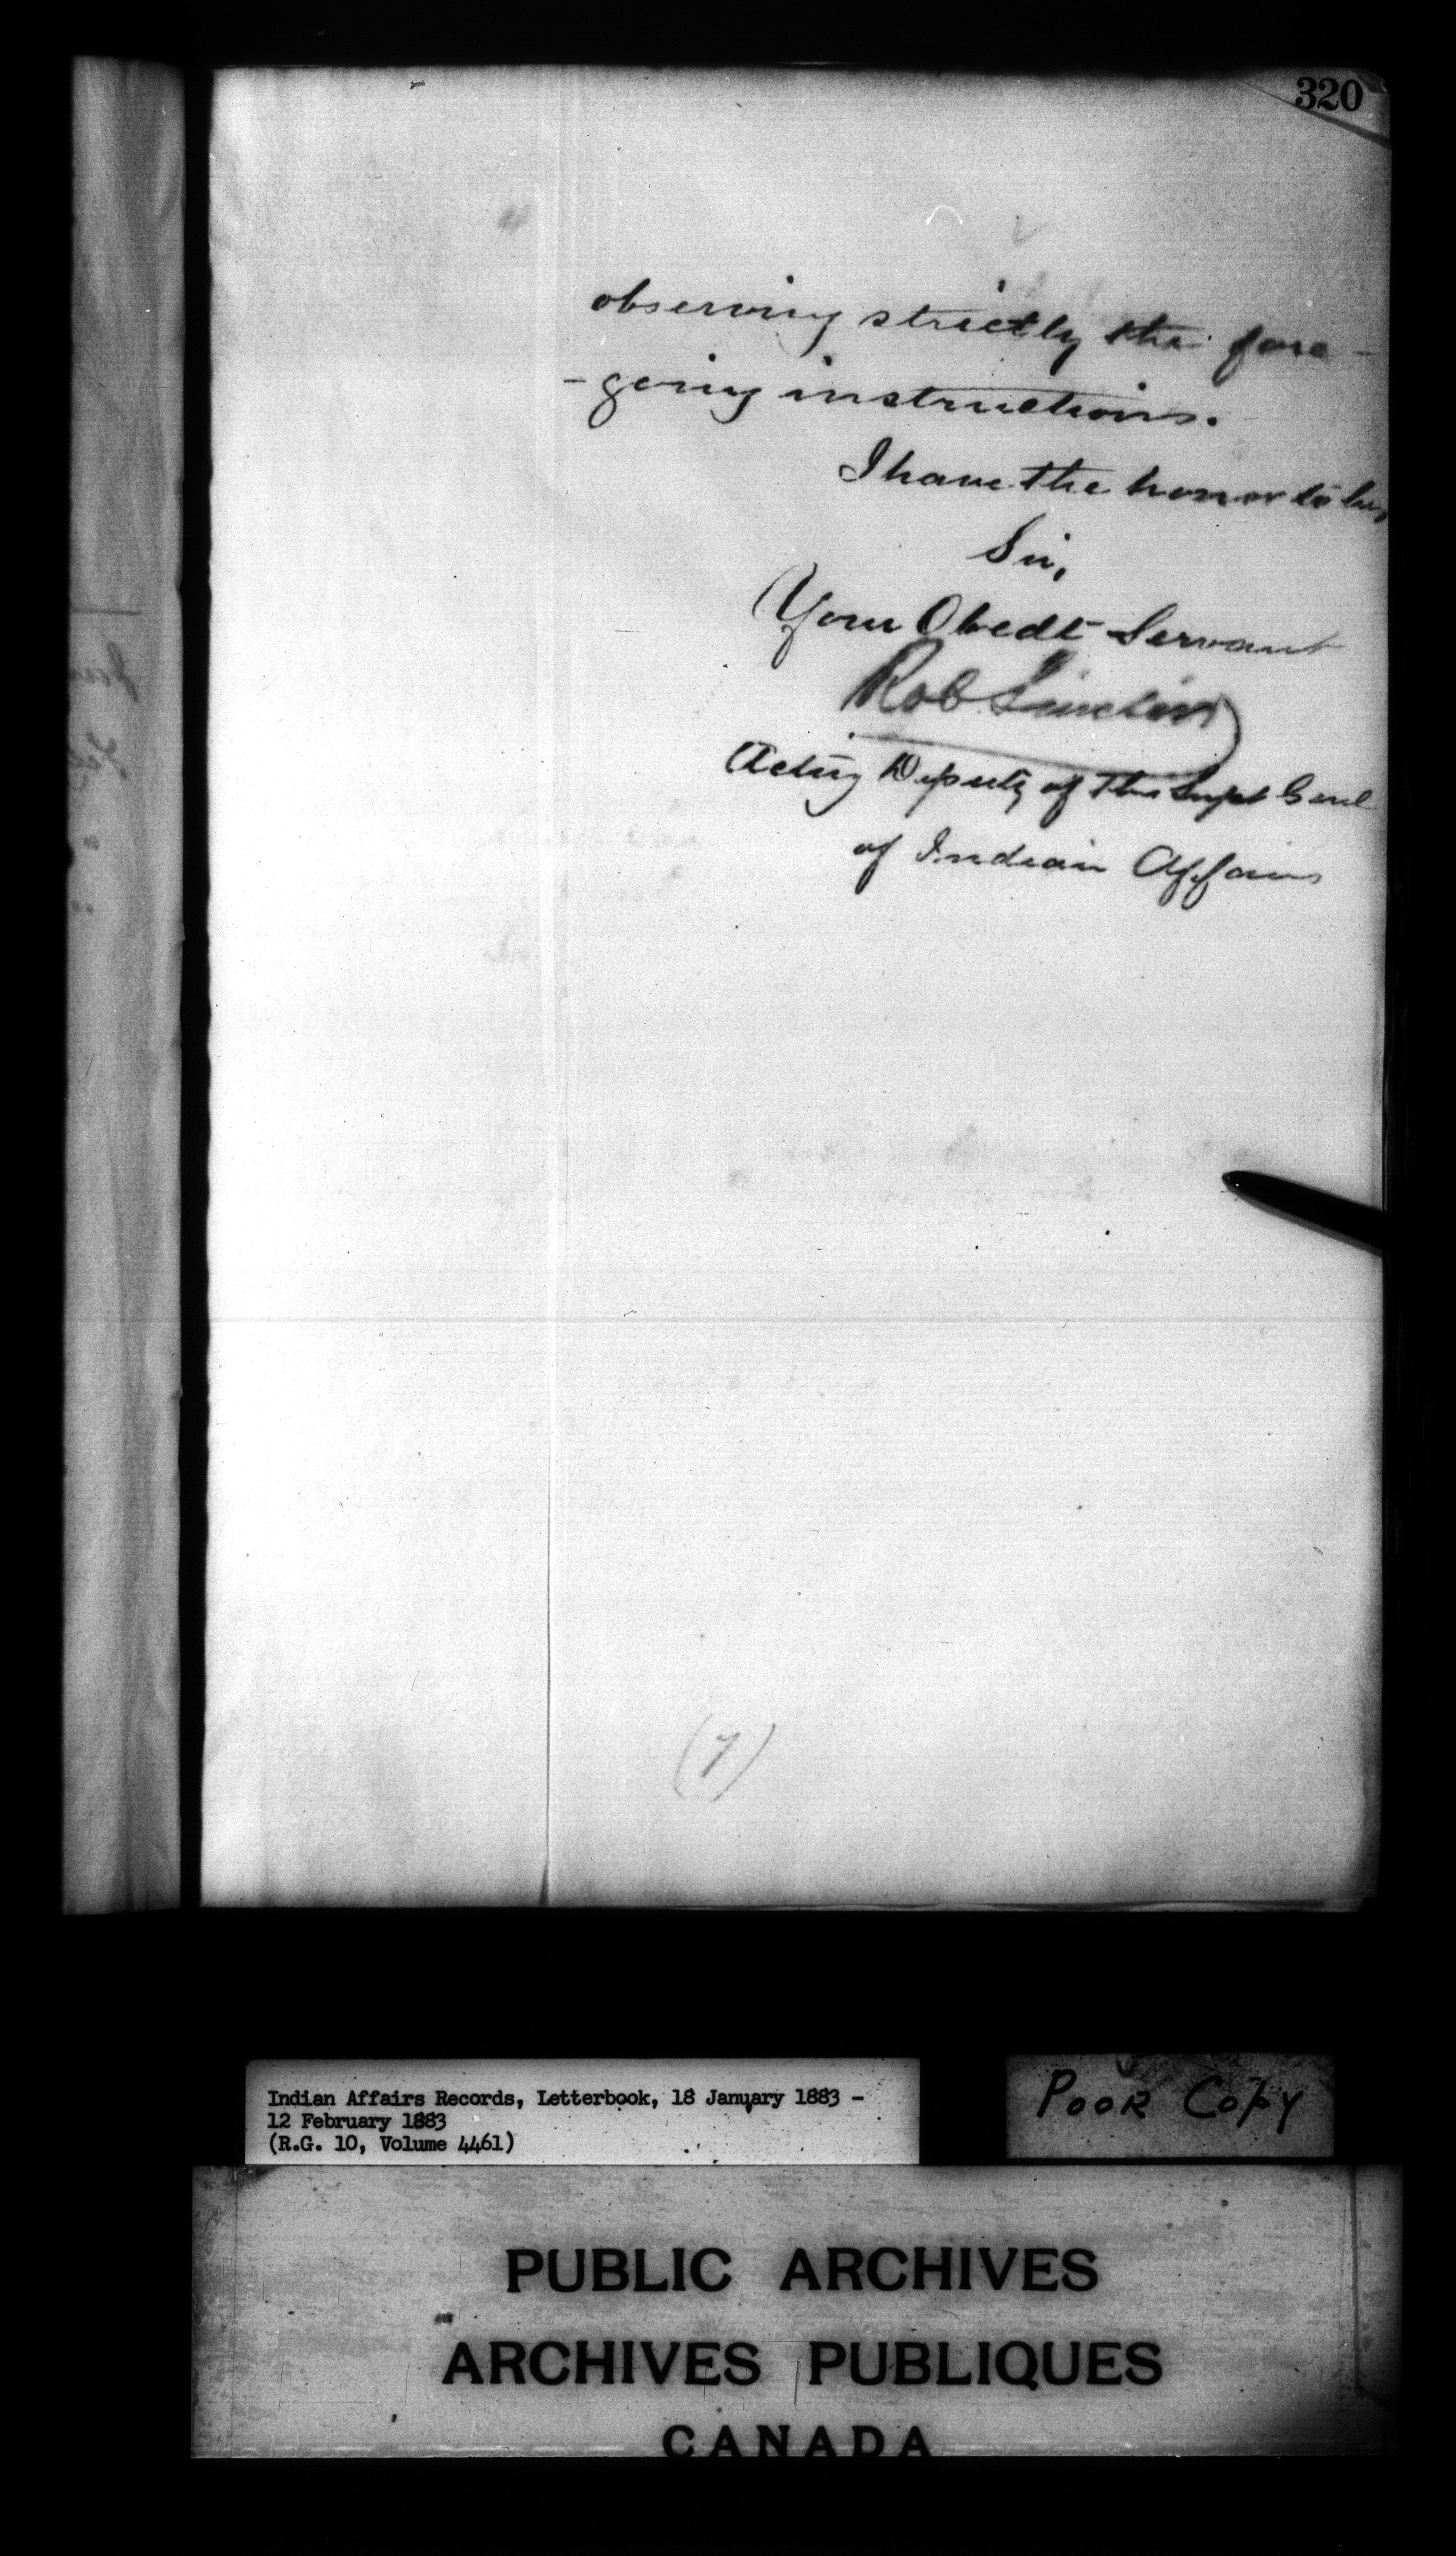 320
observing strictly the fore-
-going instructions.
I have the honor to be,
Sir,
Your Obedt Servant
Rob Sinclair
Acting Deputy of The Supt Genl
of Indian Affairs
(7)
Indian Affairs Records, Letterbook, 18 January 1883 -
12 February 1883
(R.G. 10, Volume 4461)
POOR COPY
PUBLIC ARCHIVES
ARCHIVES PUBLIQUES
CANADA